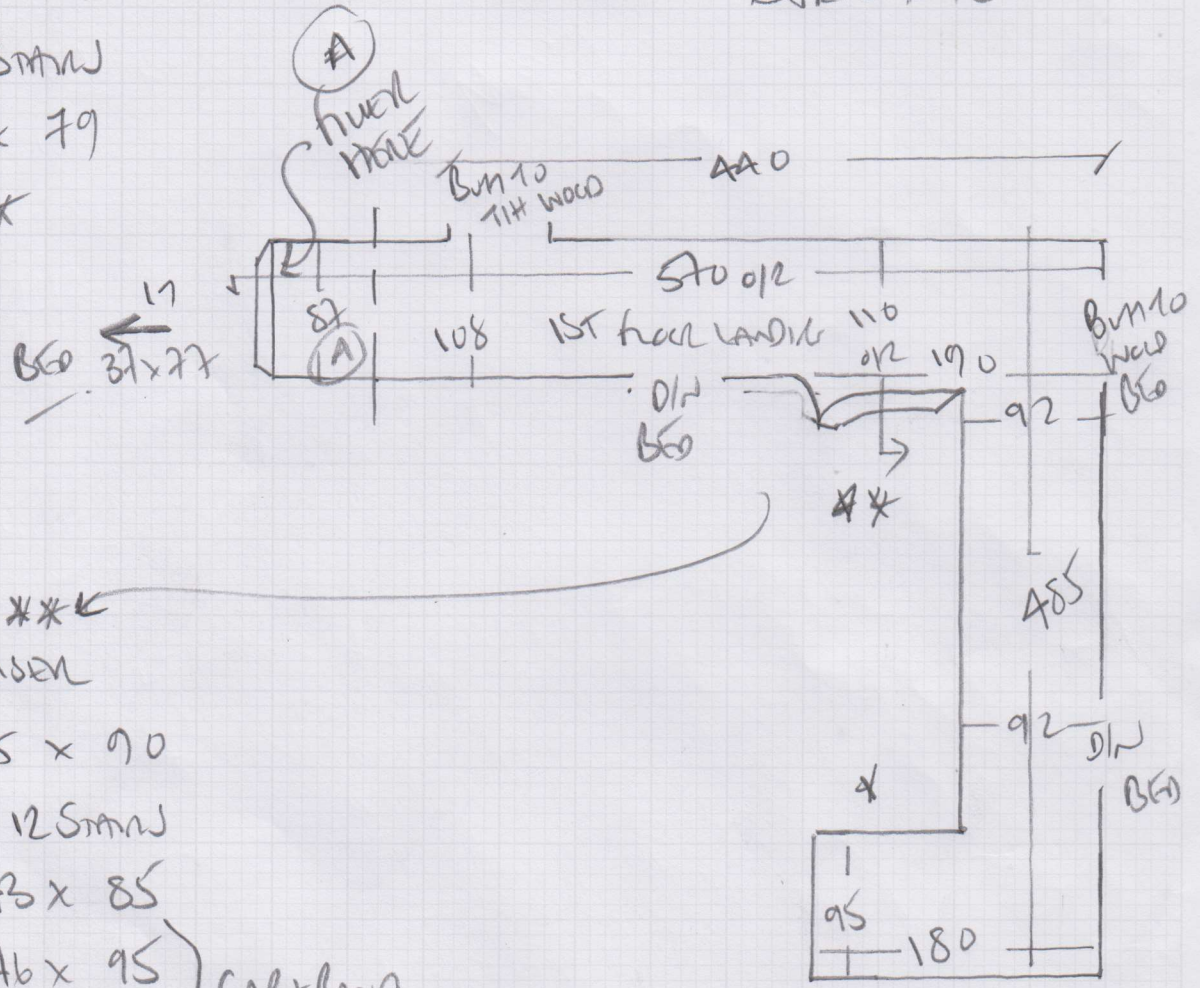 STAIRS
x 79
*
A
FILLER
PIECE
440
BUTT TO
TIH WOOD
570 O/R
87
A
108
1ST FLOOR LANDING
110
O/R
190
BUTT TO
WOOD
BED
17
BED 37x77
D/N
BED
92
**
485
**
5 x 90
12 STAIRS
3 x 85
46 x 95
92
D/N
BED
*
95
180